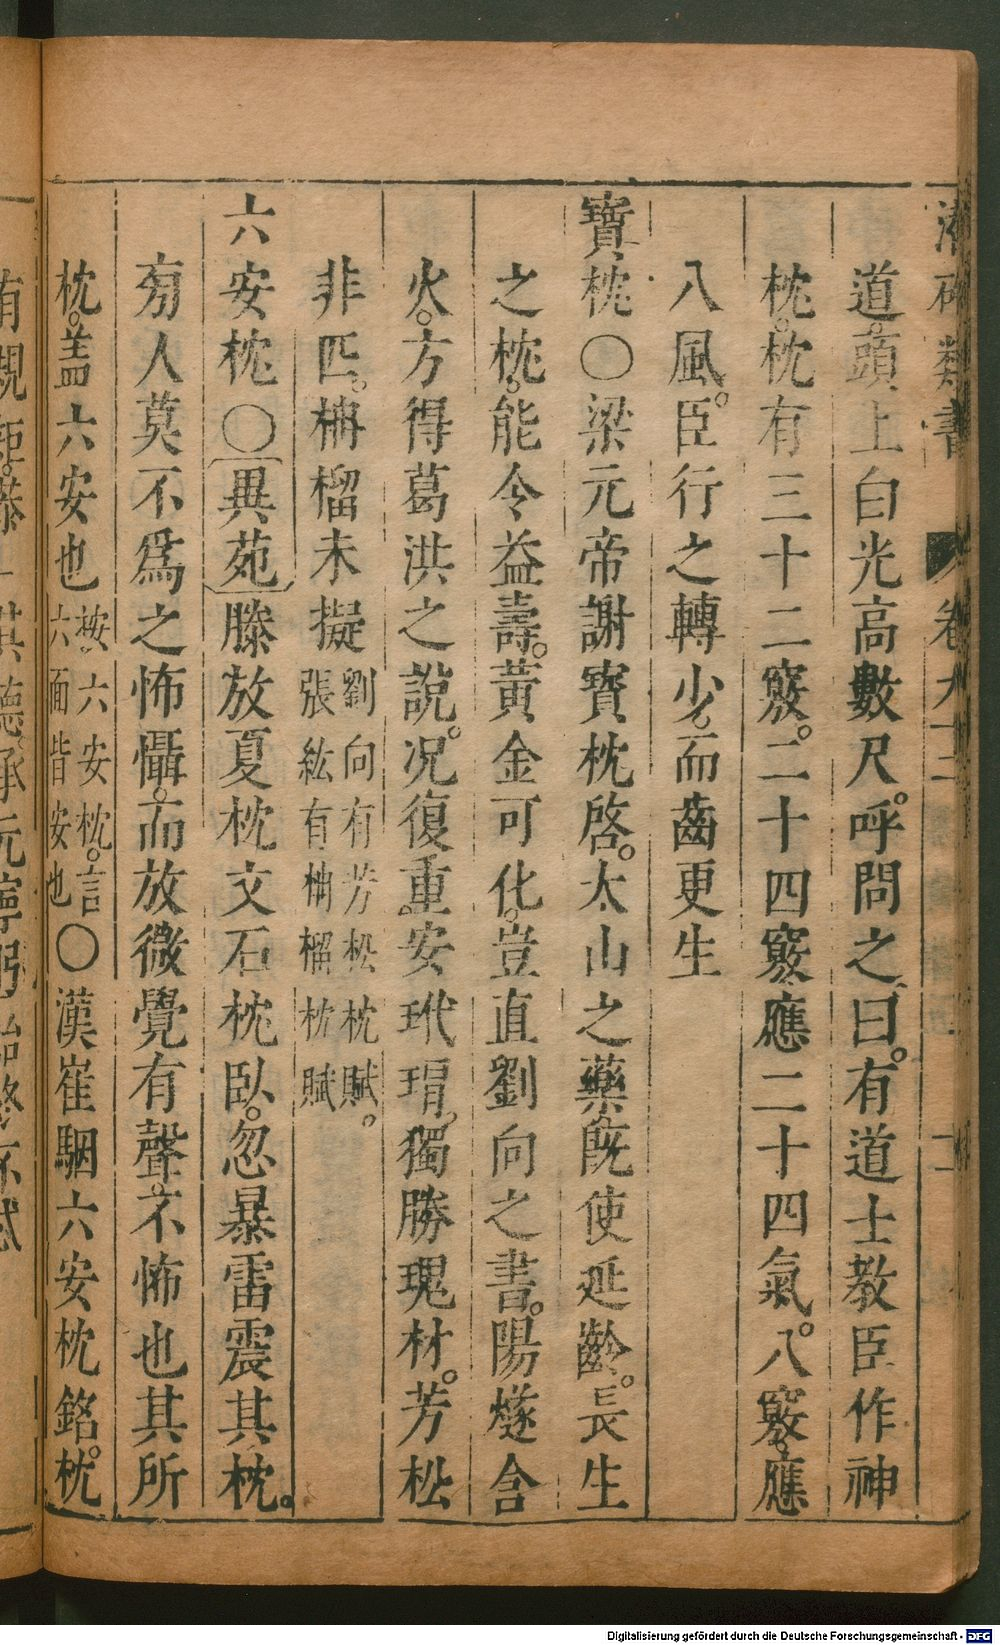 類書 卷
道頭上白光高數尺呼問之曰有道士教臣作神
枕枕有三十二竅二十四竅應二十四氣八竅應
八風臣行之轉少而齒更生
寶枕○梁元帝謝寶枕啓太山之藥既使延齡長生
之枕能令益壽黃金可化豈直劉向之書陽燧含
火方得葛洪之說况復重安玳瑁獨勝瑰材芳松
非匹柟榴未擬劉向有芳松枕賦張紘有柟榴枕賦
六安枕○異苑滕放夏枕文石枕臥忽暴雷震其枕
旁人莫不爲之怖懾而放微覺有聲不怖也其所
枕盖六安也桉六安枕言六面皆安也○漢崔駰六安枕銘枕
有規矩
Digitalisierung gefördert durch die Deutsche Forschungsgemeinschaft - DFG